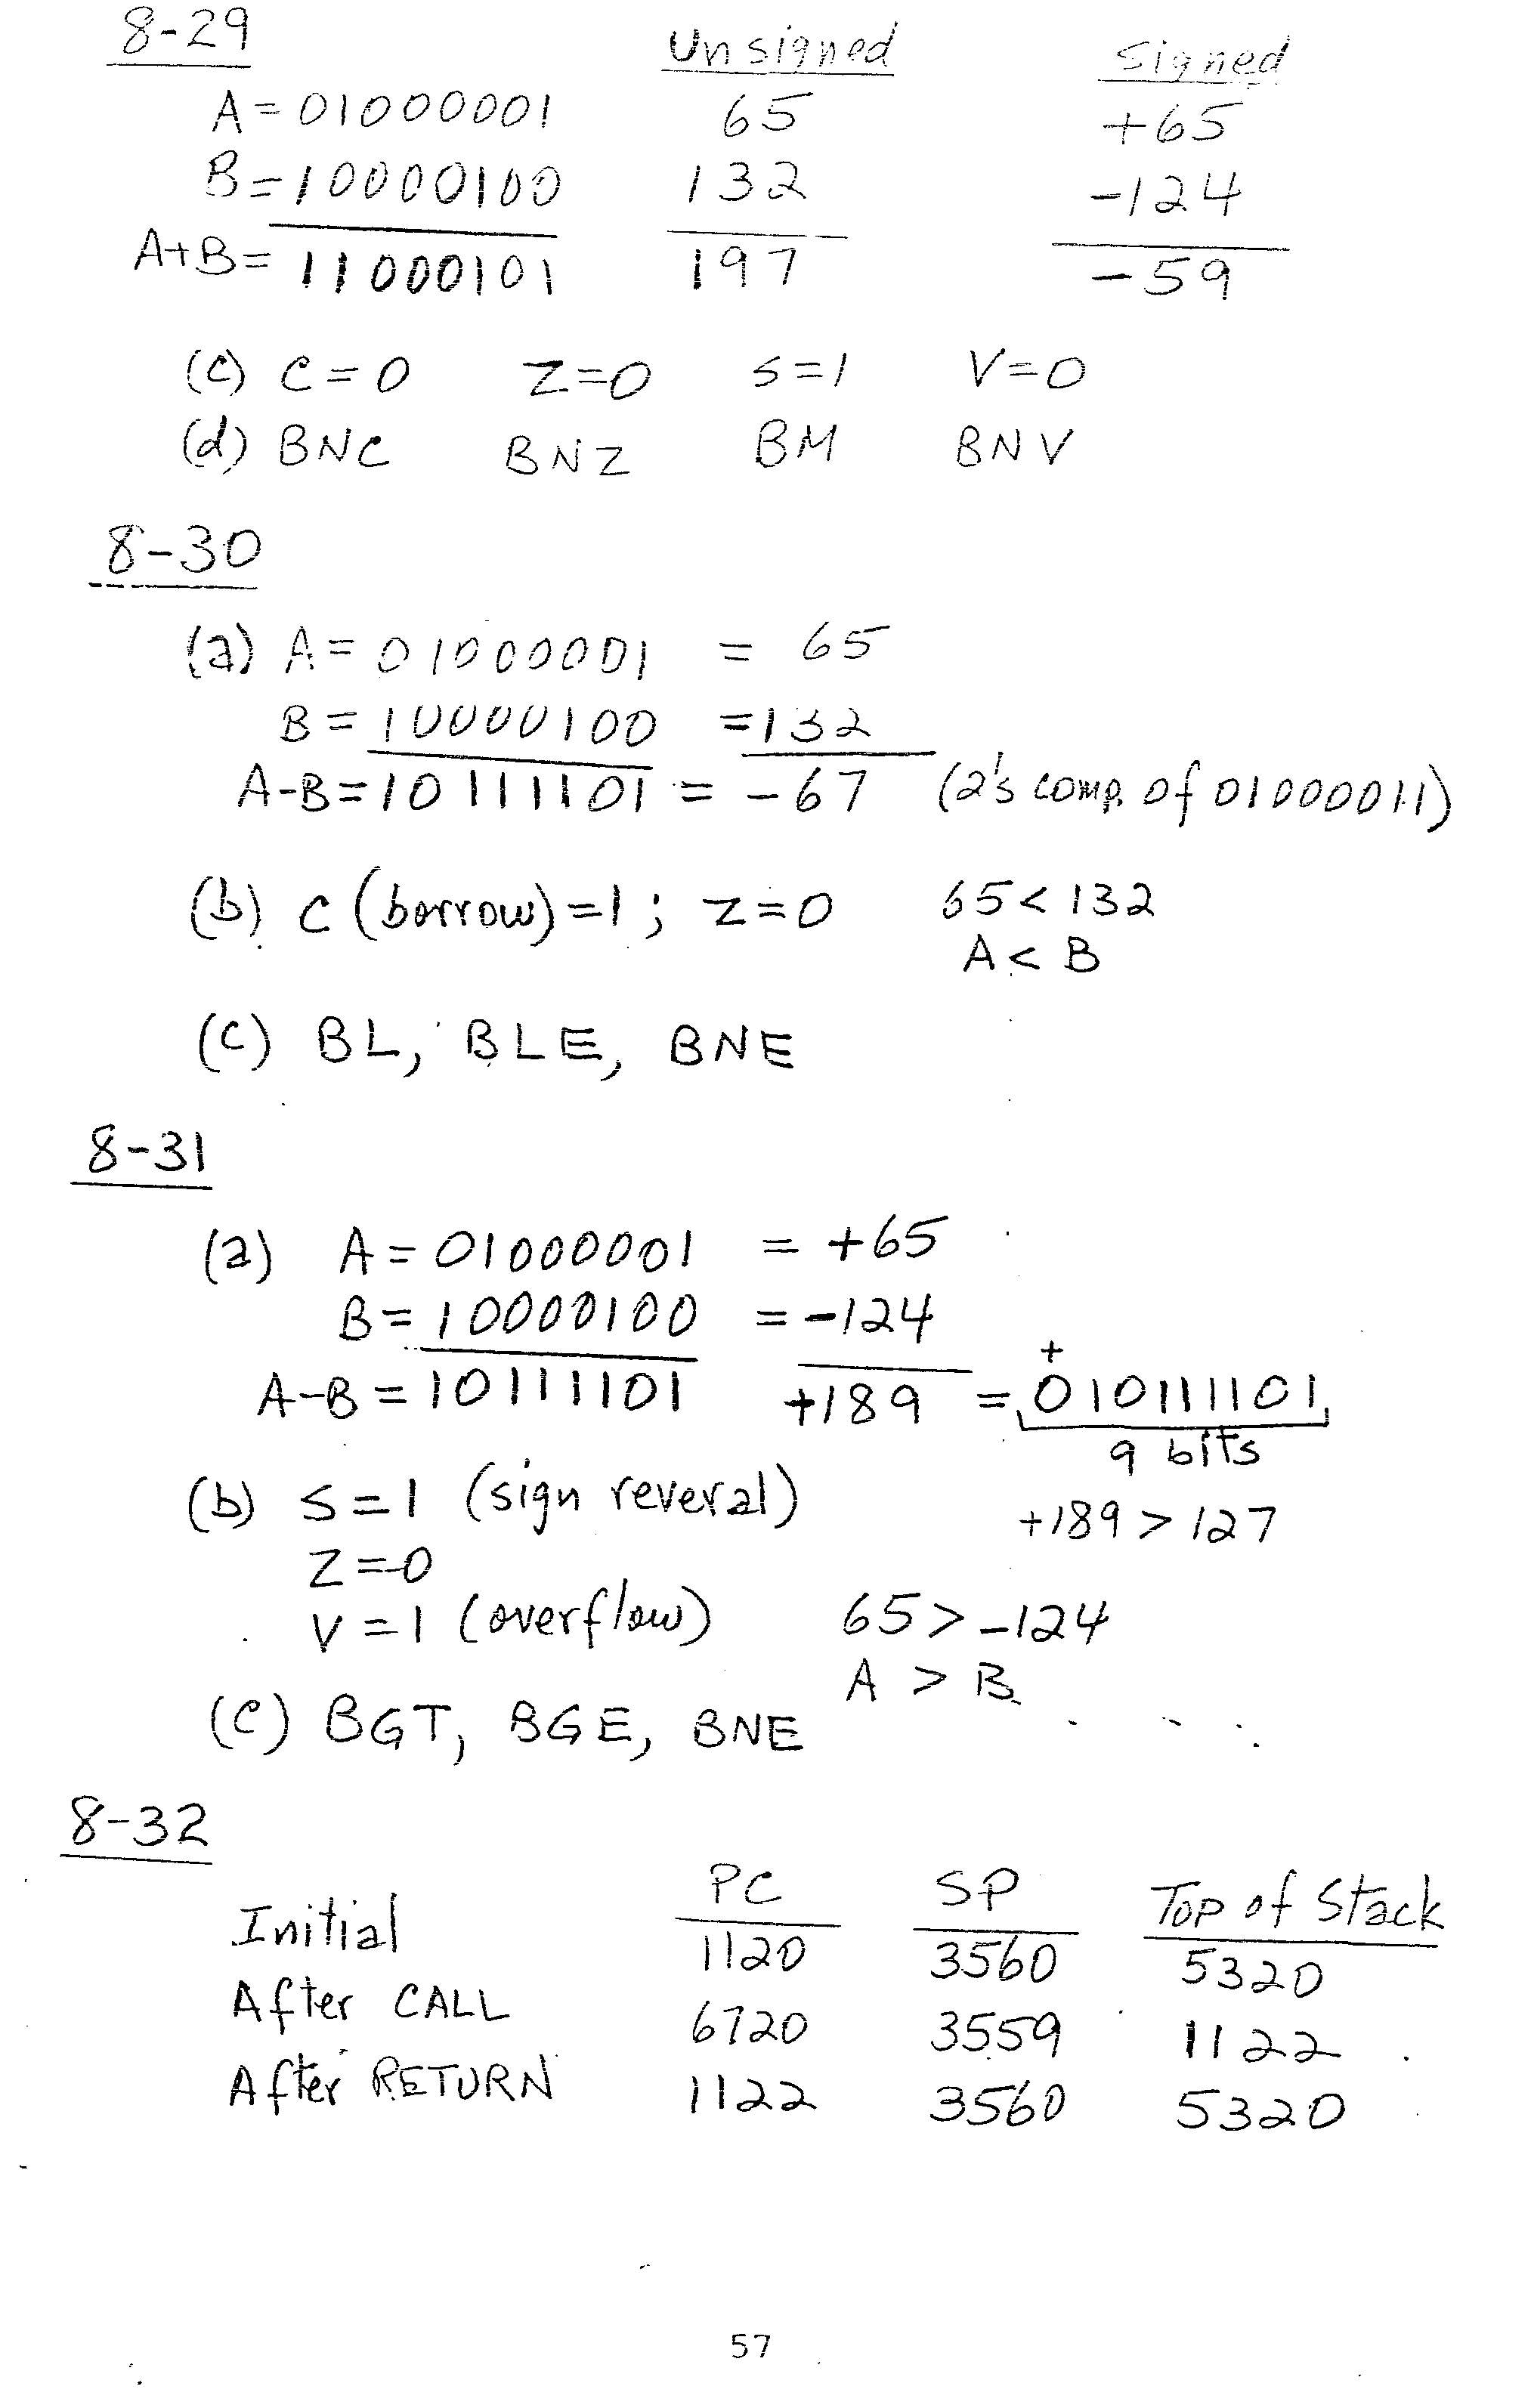 8-29 Unsigned Signed
A = 01000001 65 +65
B = 10000100 132 -124
A+B = 11000101 197 -59
(c) C = 0 Z = 0 S = 1 V = 0
(d) BNC BNZ BM BNV
8-30
(a) A = 01000001 = 65
B = 10000100 = 132
A-B = 10111101 = -67 (2's comp. of 01000011)
(b) C (borrow) = 1; Z = 0 65 < 132
A < B
(c) BL, BLE, BNE
8-31
(a) A = 01000001 = +65
B = 10000100 = -124
+
A-B = 10111101 +189 = 010111101
9 bits
(b) S = 1 (sign reveral) +189 > 127
Z = 0
V = 1 (overflow) 65 > -124
A > B
(c) BGT, BGE, BNE
8-32
PC SP Top of Stack
Initial 1120 3560 5320
After CALL 6720 3559 1122
After RETURN 1122 3560 5320
57